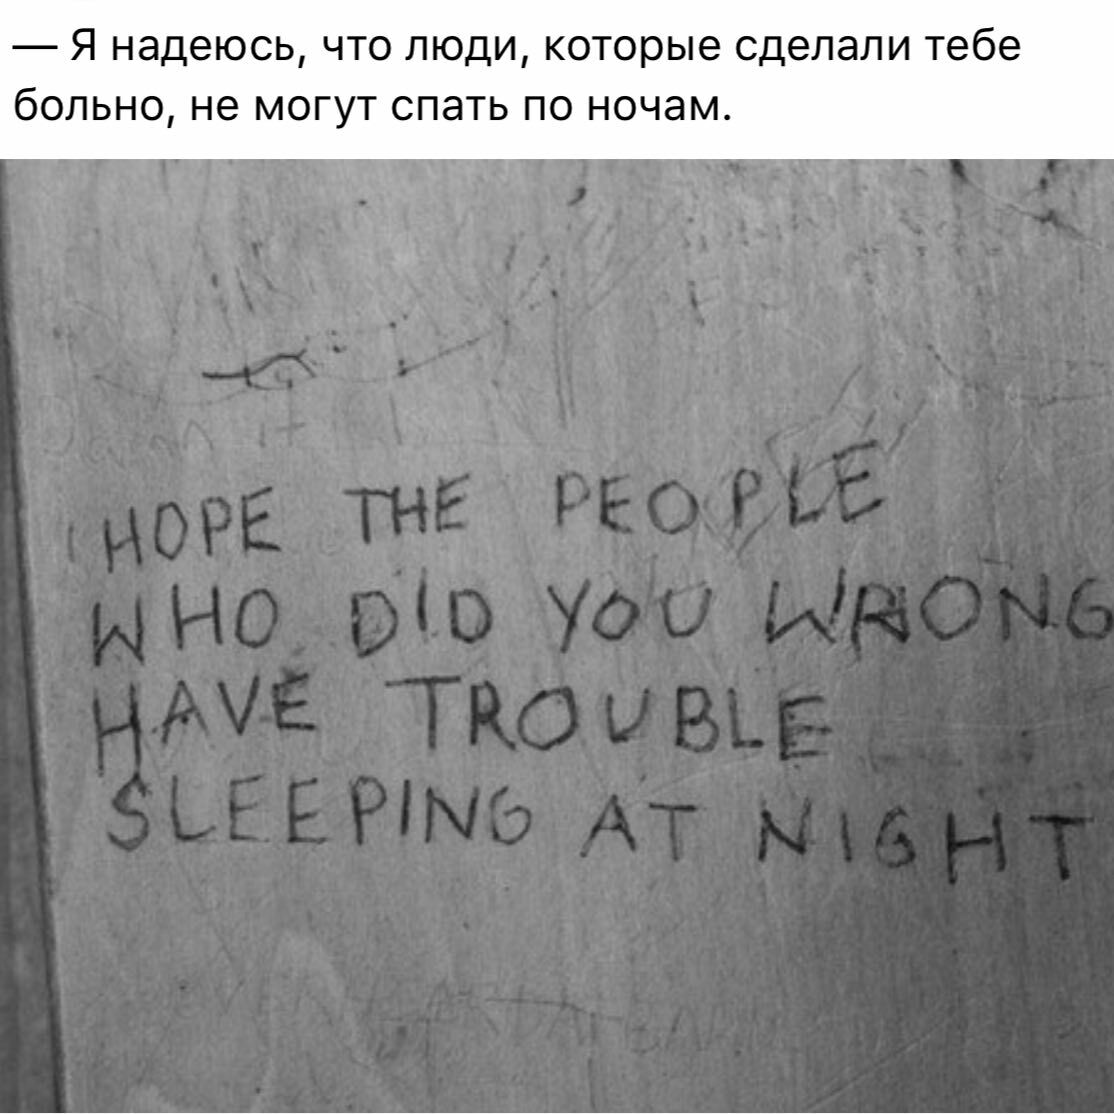 — Я надеюсь, что люди, которые сделали тебе
больно, не могут спать по ночам.
I HOPE THE PEOPLE
WHO DID YOU WRONG
HAVE TROUBLE
SLEEPING AT NIGHT